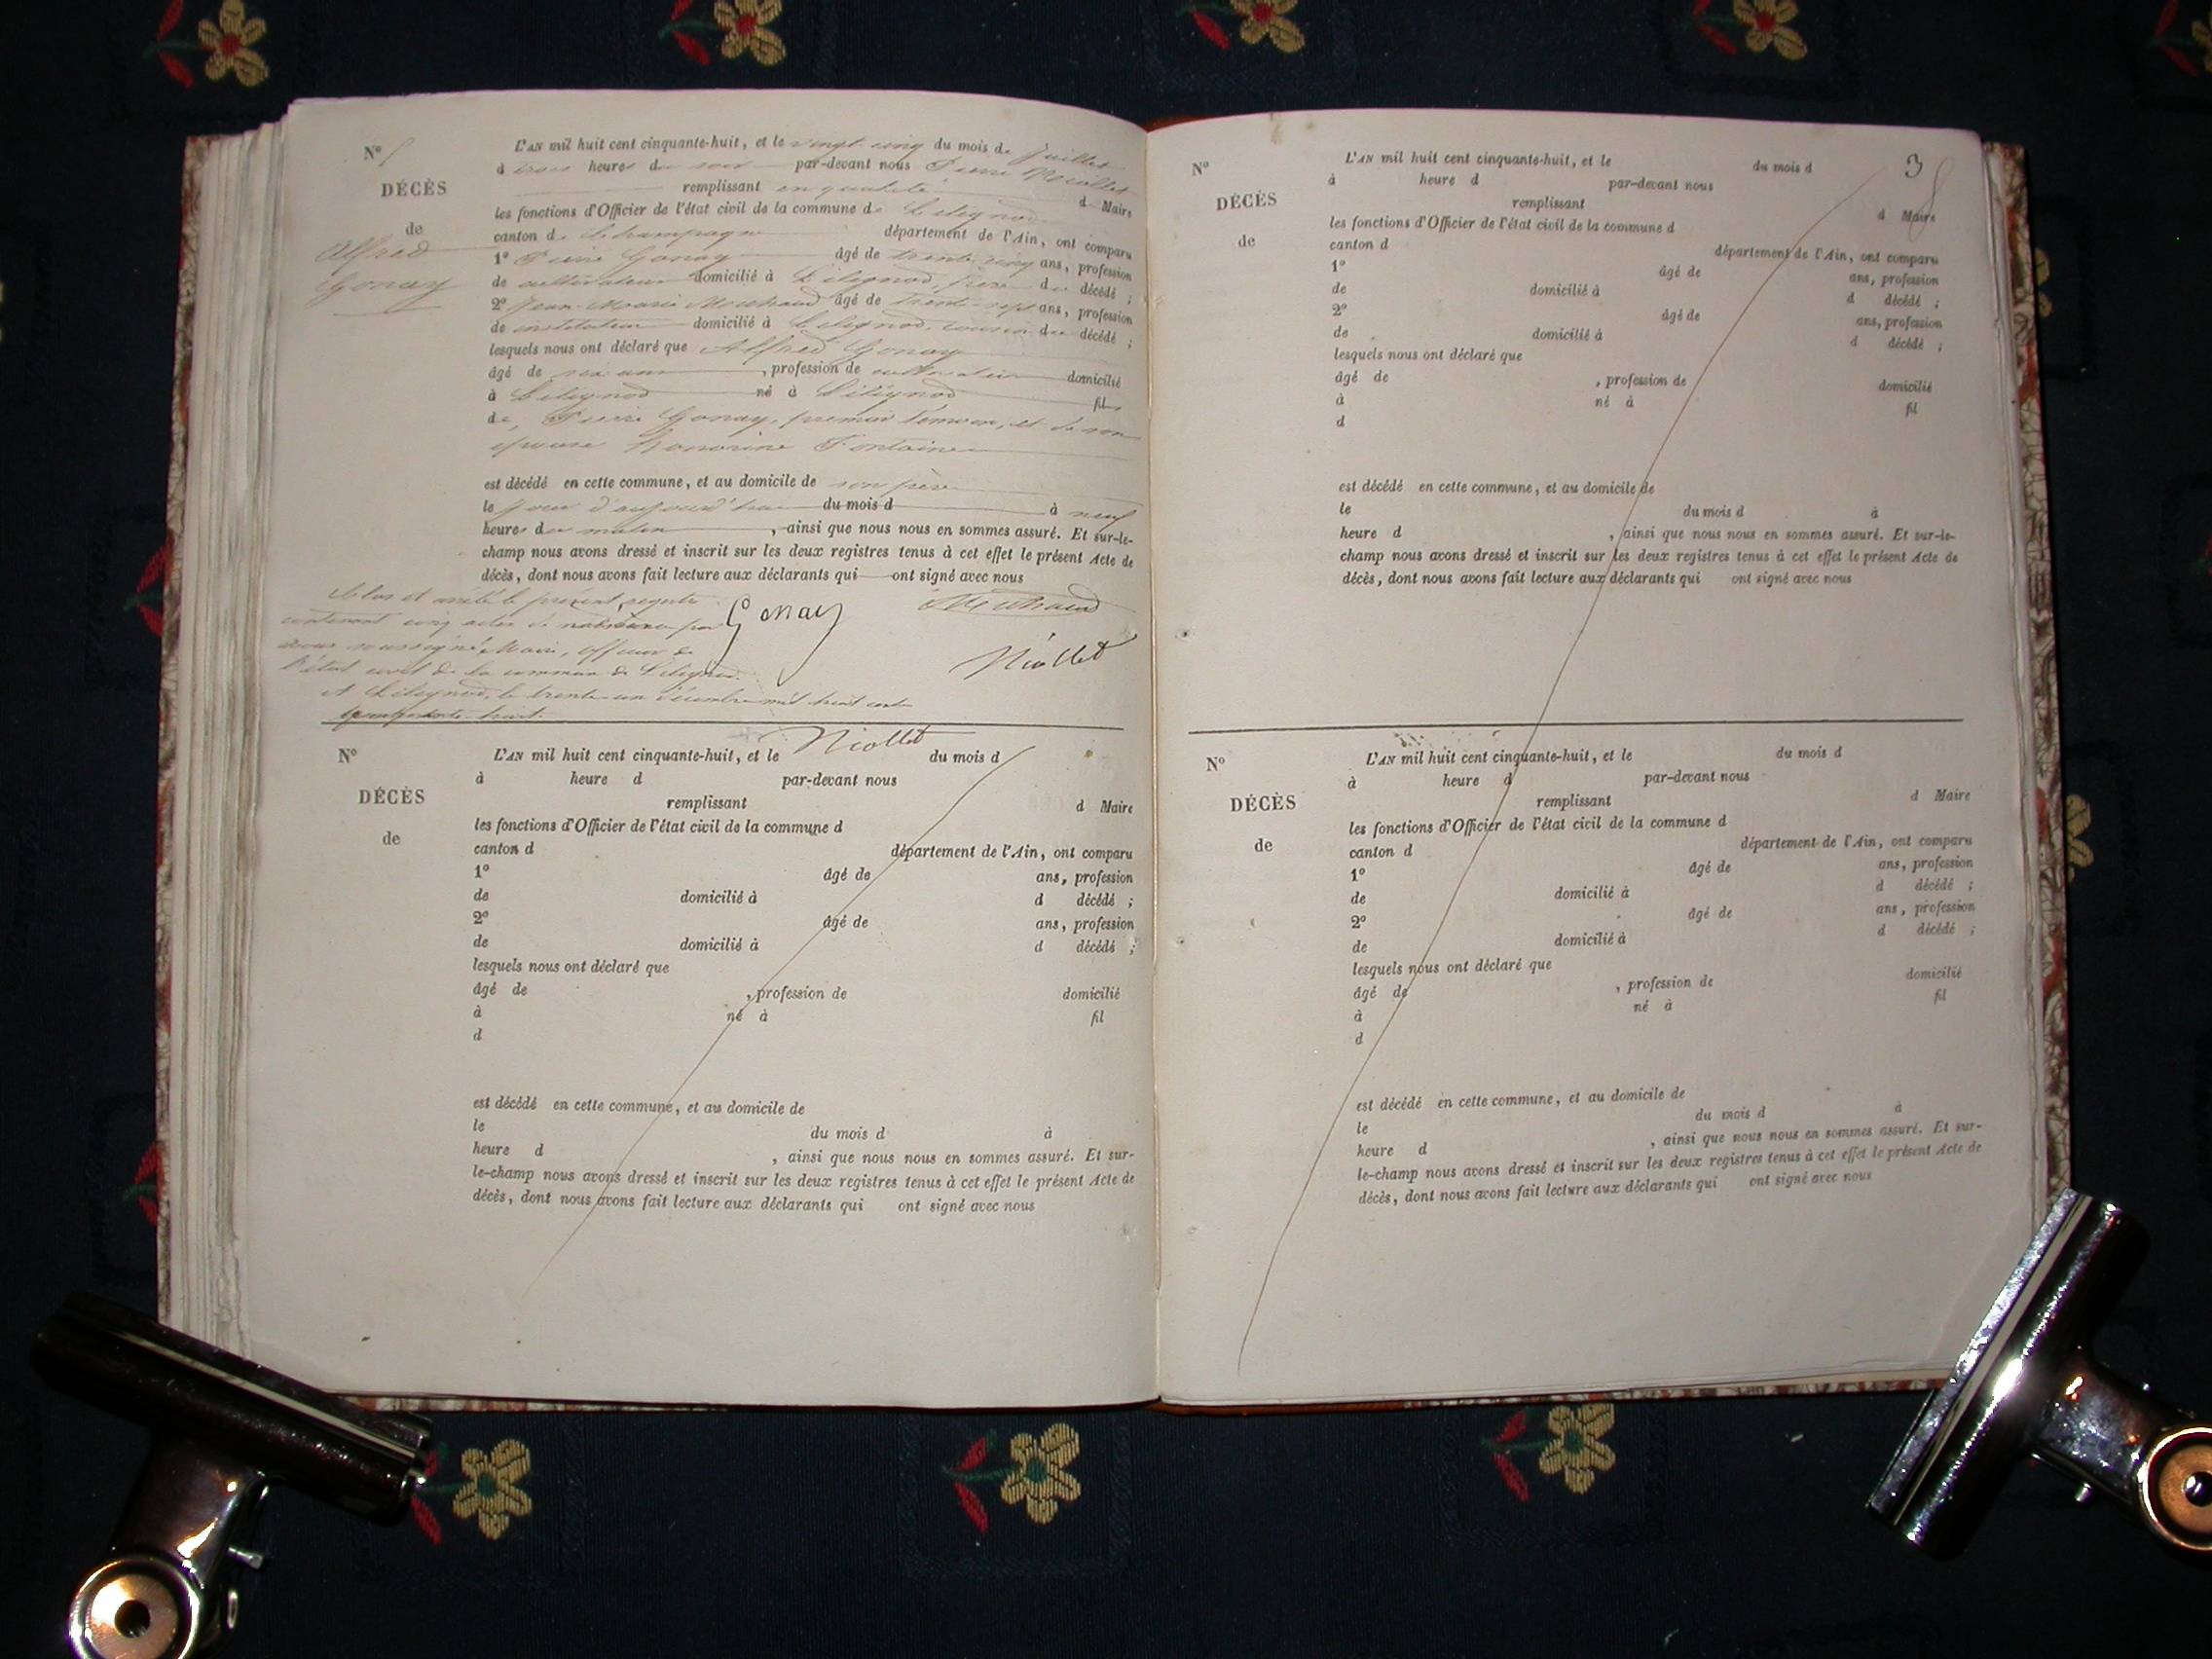 N° 5
DÉCÈS
de
Alfred
Gonay
L'AN mil huit cent cinquante-huit, et le vingt-cinq du mois de Juillet
à trois heures du soir par-devant nous Pierre Niollet
remplissant en qualité de Maire
les fonctions d'Officier de l'état civil de la commune de Lilignod
canton de Champagne département de l'Ain, ont comparu
1° Pierre Gonay âgé de trente-cinq ans, profession
de cultivateur domicilié à Lilignod, père du décédé ;
2° Jean-Marie âgé de trente-sept ans, profession
de instituteur domicilié à Lilignod, cousin du décédé ;
lesquels nous ont déclaré que Alfred Gonay
âgé de six ans, profession de cultivateur domicilié
à Lilignod né à Lilignod fils
de Pierre Gonay, premier témoin, et de son
épouse Honorine Fontaine
est décédé en cette commune, et au domicile de son père
le jour d'aujourd'hui du mois d à neuf
heures du matin, ainsi que nous nous en sommes assuré. Et sur-le-
champ nous avons dressé et inscrit sur les deux registres tenus à cet effet le présent Acte de
décès, dont nous avons fait lecture aux déclarants qui ont signé avec nous
Clos et arrêté le présent registre
contenant cinq actes de par
nous soussigné, Maire, officier de
l'état civil de la commune de Lilignod.
A Lilignod, le trente-un décembre mil huit cent
cinquante-huit.
Gonay
Niollet
Niollet
N°
DÉCÈS
de
L'AN mil huit cent cinquante-huit, et le du mois d
à heure d par-devant nous
remplissant d Maire
les fonctions d'Officier de l'état civil de la commune d
canton d département de l'Ain, ont comparu
1° âgé de ans, profession
de domicilié à d décédé ;
2° âgé de ans, profession
de domicilié à d décédé ;
lesquels nous ont déclaré que
âgé de , profession de domicilié
à né à fil
d
est décédé en cette commune, et au domicile de
le du mois d à
heure d , ainsi que nous nous en sommes assuré. Et sur-
le-champ nous avons dressé et inscrit sur les deux registres tenus à cet effet le présent Acte de
décès, dont nous avons fait lecture aux déclarants qui ont signé avec nous
3
N°
DÉCÈS
de
L'AN mil huit cent cinquante-huit, et le du mois d
à heure d par-devant nous
remplissant d Maire
les fonctions d'Officier de l'état civil de la commune d
canton d département de l'Ain, ont comparu
1° âgé de ans, profession
de domicilié à d décédé ;
2° âgé de ans, profession
de domicilié à d décédé ;
lesquels nous ont déclaré que
âgé de , profession de domicilié
à né à fil
d
est décédé en cette commune, et au domicile de
le du mois d à
heure d , ainsi que nous nous en sommes assuré. Et sur-le-
champ nous avons dressé et inscrit sur les deux registres tenus à cet effet le présent Acte de
décès, dont nous avons fait lecture aux déclarants qui ont signé avec nous
N°
DÉCÈS
de
L'AN mil huit cent cinquante-huit, et le du mois d
à heure d par-devant nous
remplissant d Maire
les fonctions d'Officier de l'état civil de la commune d
canton d département de l'Ain, ont comparu
1° âgé de ans, profession
de domicilié à d décédé ;
2° âgé de ans, profession
de domicilié à d décédé ;
lesquels nous ont déclaré que
âgé de , profession de domicilié
à né à fil
d
est décédé en cette commune, et au domicile de
le du mois d à
heure d , ainsi que nous nous en sommes assuré. Et sur-
le-champ nous avons dressé et inscrit sur les deux registres tenus à cet effet le présent Acte de
décès, dont nous avons fait lecture aux déclarants qui ont signé avec nous